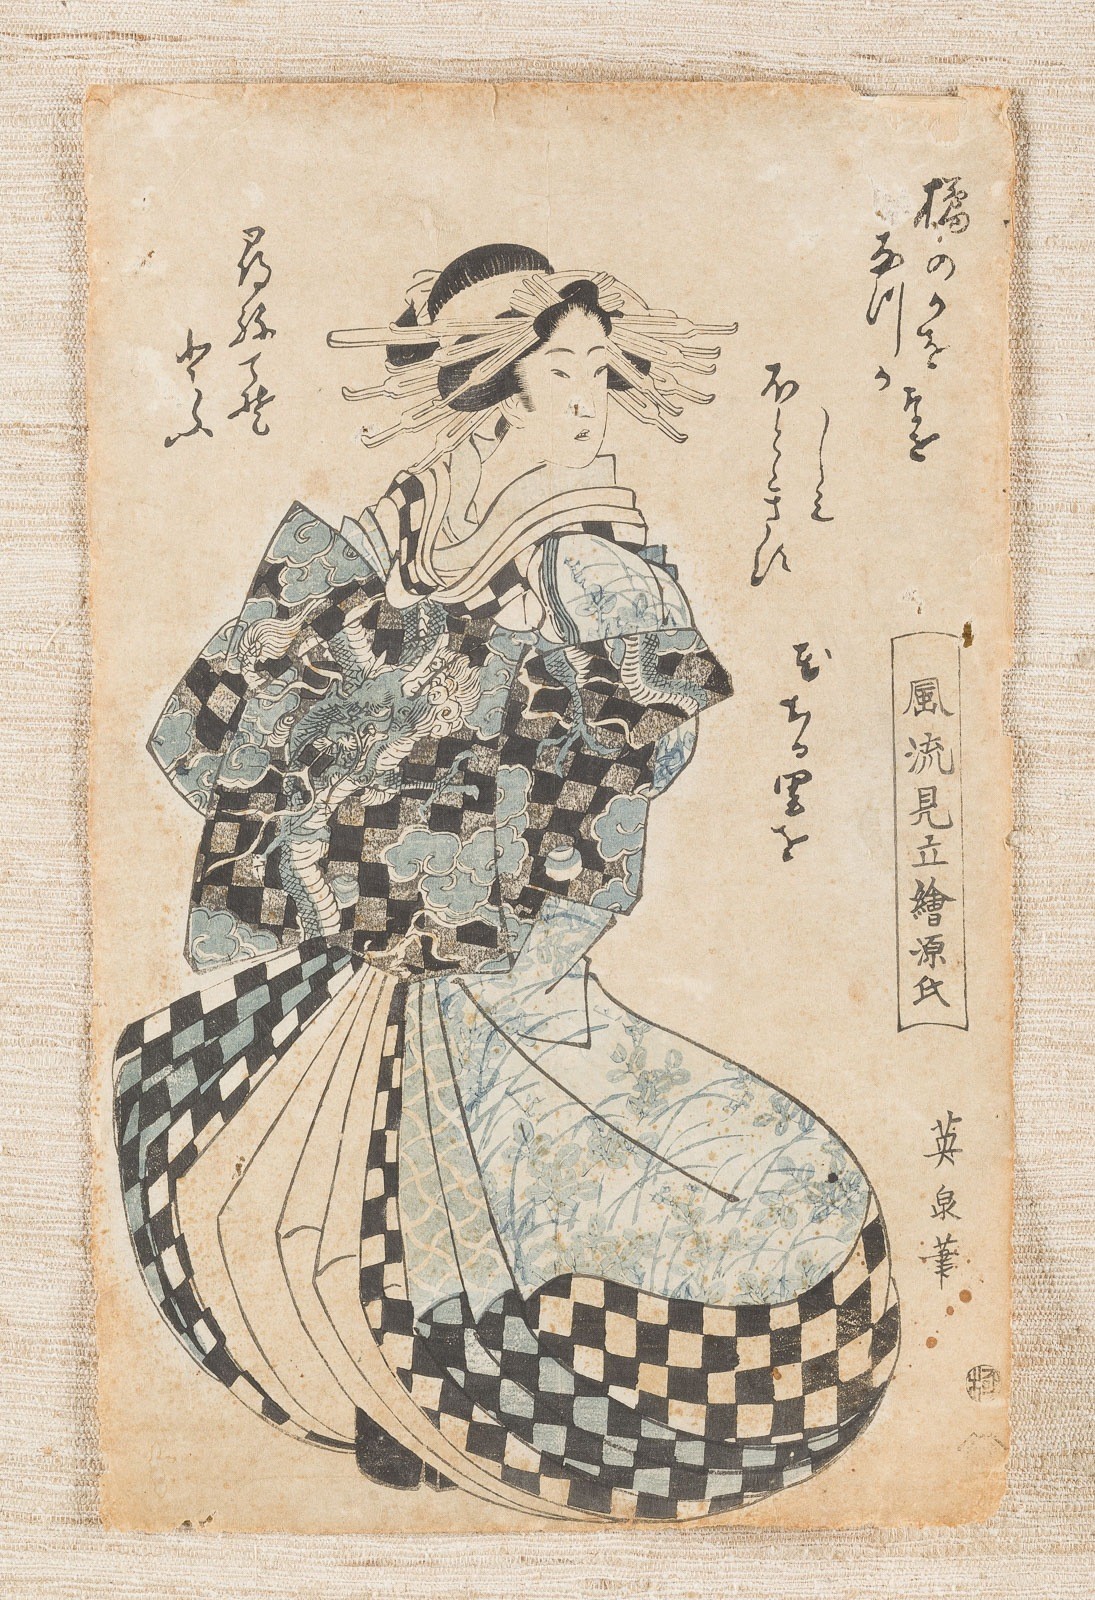 橘のかを
なつか
しみ
ほとゝきす
花ちる里を
尋ねてそ
とふ
風流見立繪源氏
英泉筆